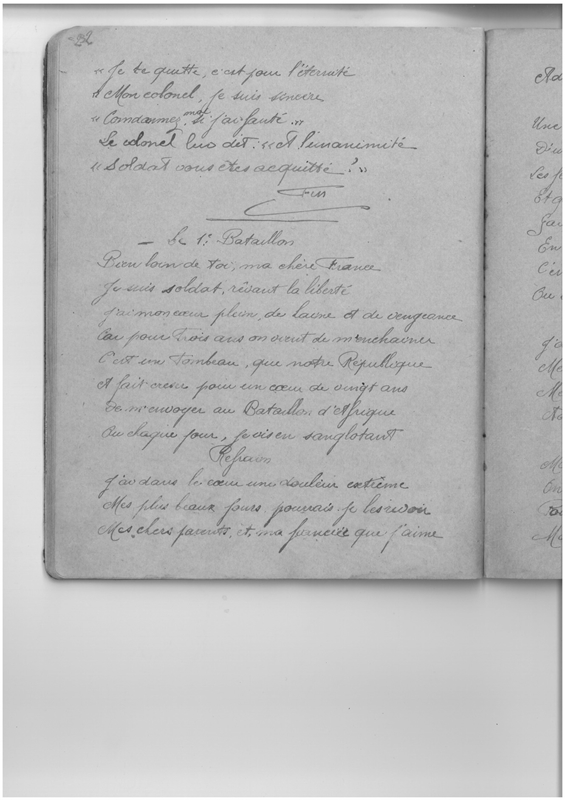 32
« Je te quitte, c'est pour l'éternité
« Mon colonel, je suis sincère
« Condannez moi si j'ai fauté »
Le colonel lui dit : « A l'unanimité
« Soldat vous êtes acquitté ? »
Fin
— Le 1er Bataillon
Bien loin de toi, ma chère France
Je suis soldat, rêvant la liberté
J'ai mon cœur plein, de haine et de vengeance
Car pour trois ans on vient de m'enchainer
C'est un tombeau, que notre République
A fait creser pour un cœur de vingt ans
De m'envoyer au Bataillon d'Afrique
Ou chaque jour, je vis en sanglotant
Refrain
J'ai dans le cœur une douleur extrême
Mes plus beaux jours, pourrais-je les revoir
Mes chers parents, et, ma fiancée que j'aime
Une
D'u
Les f
Et q
En
C'é
Ou
J'a
Me
M